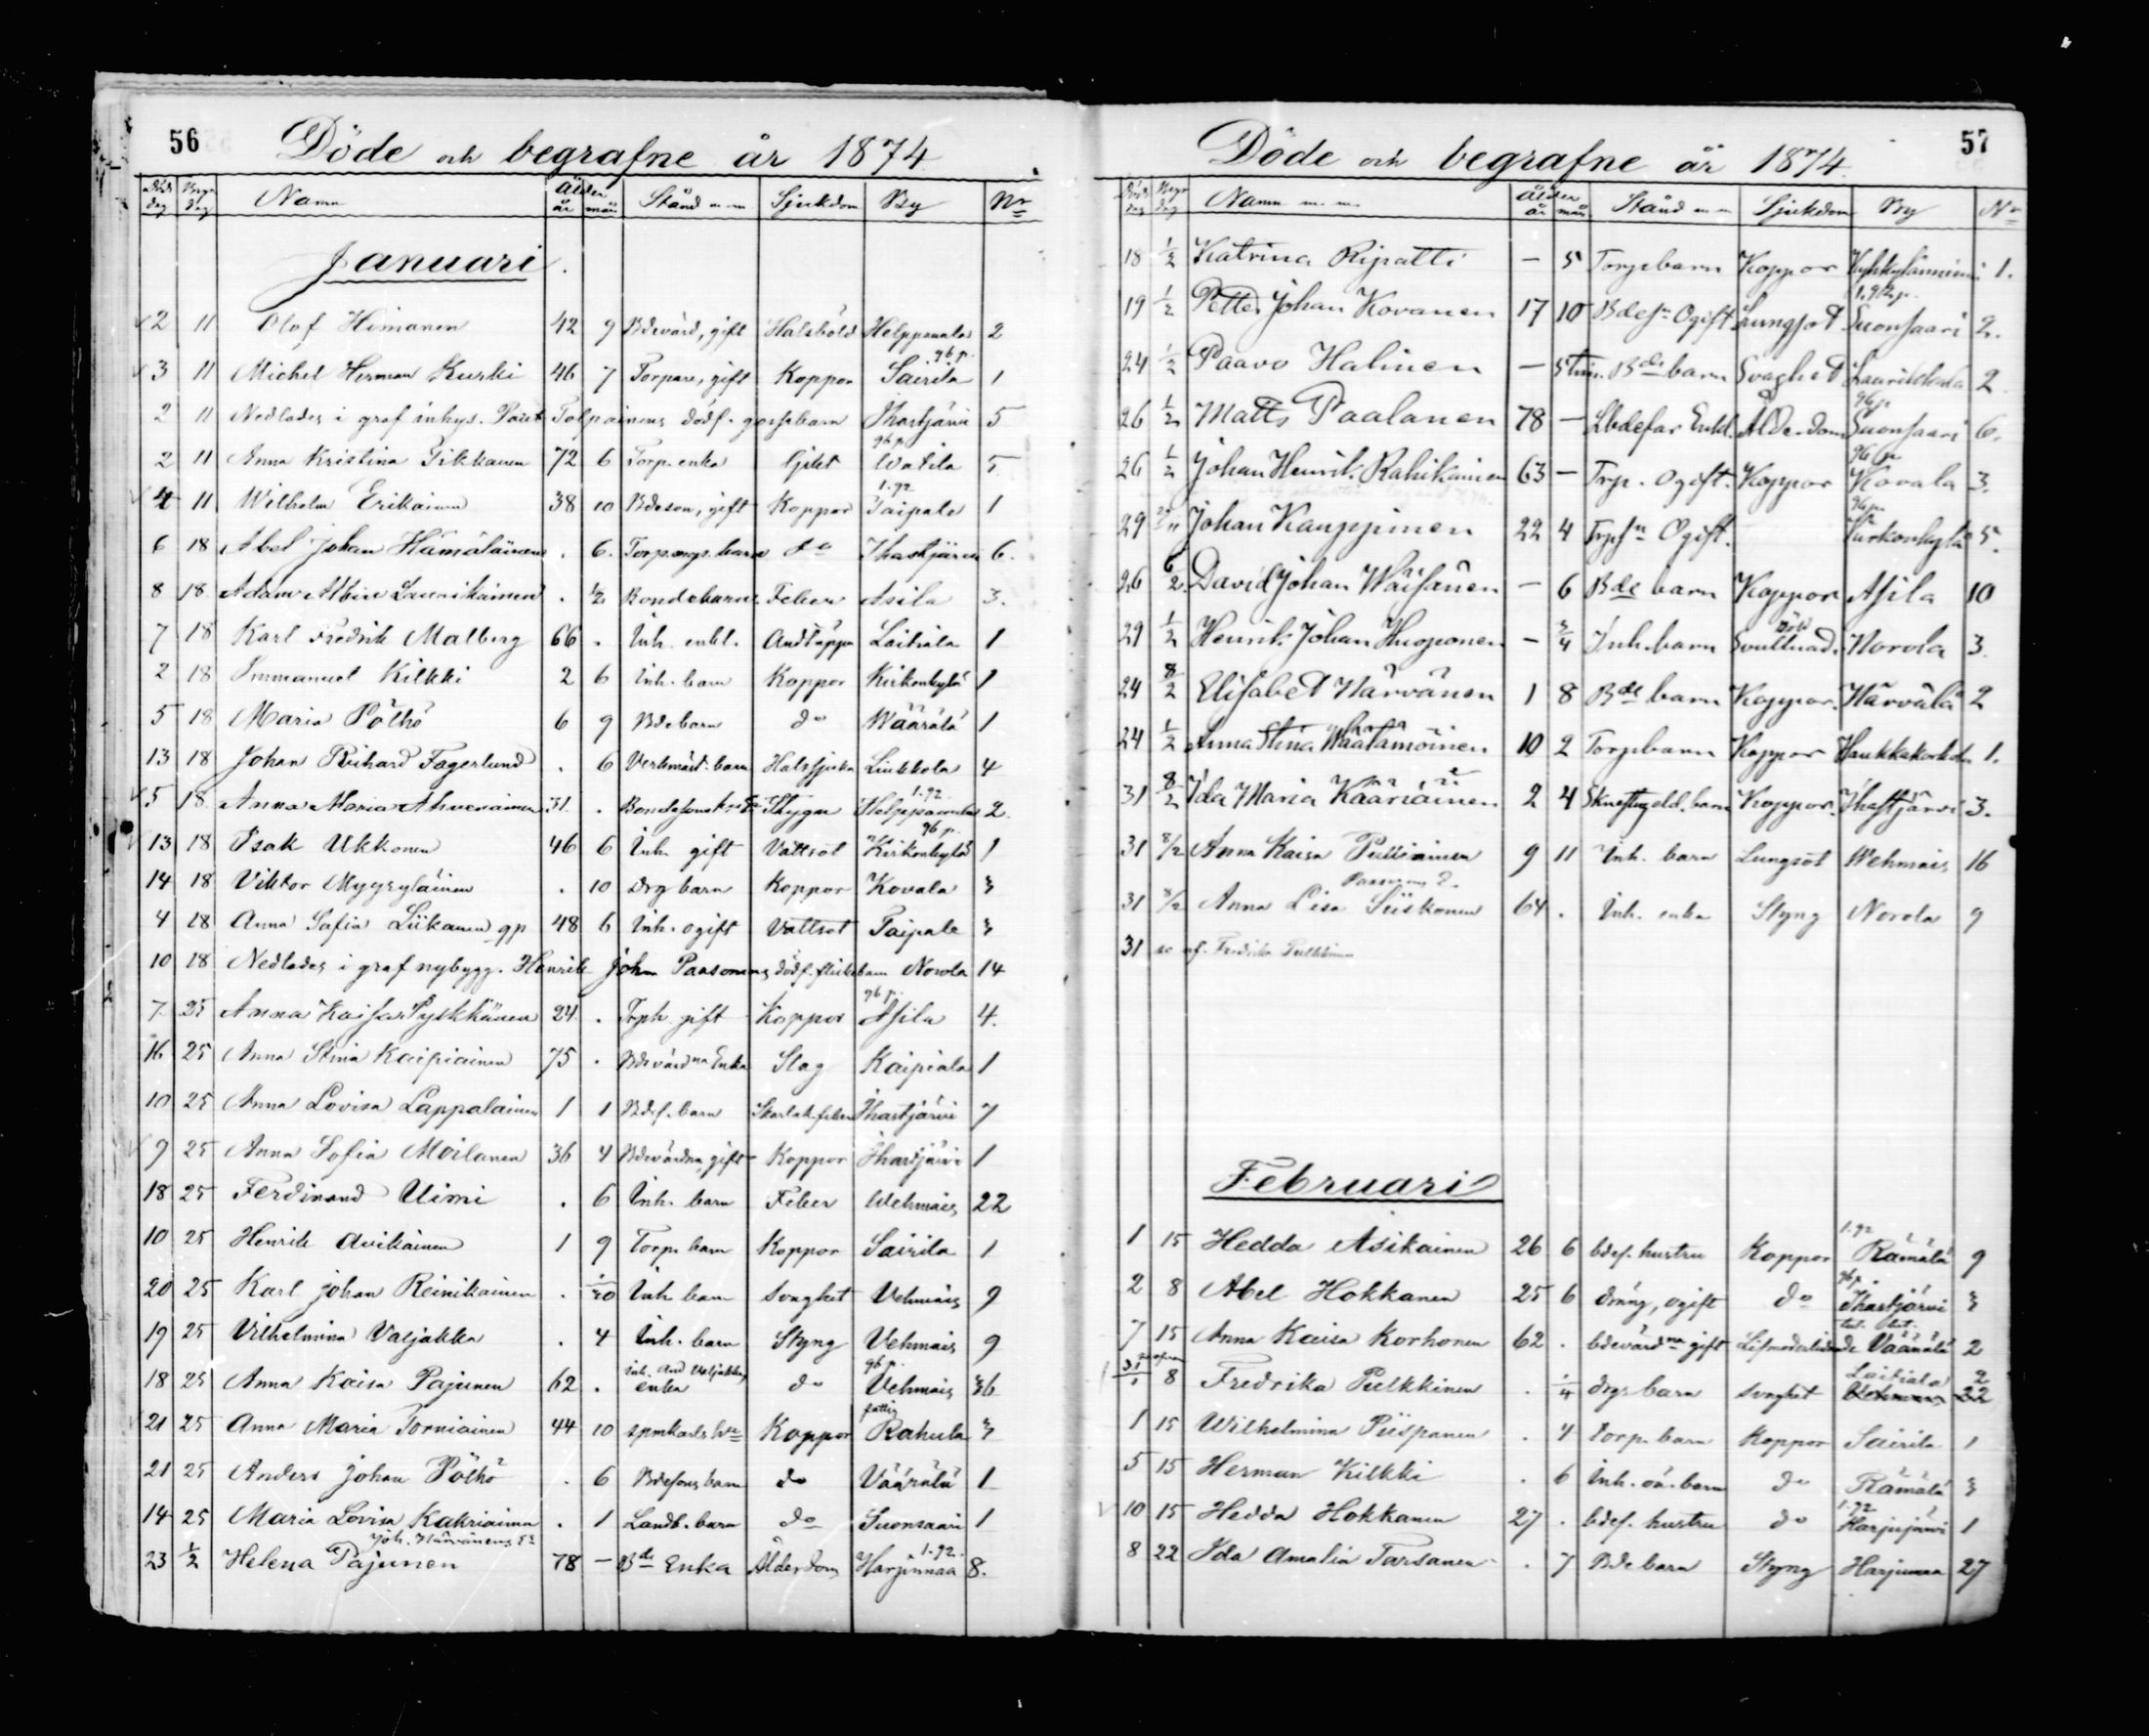 56
Döde och begrafne år 1874
Död dag Begr dag Namn Ålder år mån Stånd m m Sjukdom By No
Januari.
2 11 Olof Himanen 42 9 Bdevärd, gift Halsböld 2
3 11 Michel Herman Kurki 46 7 Torpare, gift Koppor Sairila 96 p. 1
2 11 Nedlades i graf inhys. dödf. gossebarn Ihastjärvi 5
2 11 Anna Kristina Tikkanen 72 6 Torp. enka Watila 96 p. 5
4 11 Wilhelm Erikainen 38 10 Bdeson, gift Koppor Paipale 1.92 1
6 18 Abel Johan Hämäläinen . 6. barn do Ihastjärvi 6.
8 18 Adam Albin Laurikainen . ½ Bondebarn Feber Asila 3.
7 18 Karl Fredrik Malberg 66 . Inh. enkl. Andtäppa Laitiala 1
2 18 Immanuel Kilkki 2 6 Inh. barn Koppor Kirkonkylä 1
5 18 Maria Pölhö 6 9 Bde barn do Wäärälä 1
13 18 Johan Richard Fagerlund . 6 Verkmäst. barn Halssjuka Liukkola 4
5 18 Anna Maria Ahvenainen 31. . Bondesons 1.92 2.
13 18 Isak Ukkonen 46 6 Inh. gift Vattsot Kirkonkylä 96 p. 1
14 18 Viktor Myyryläinen . 10 Drg barn Koppor Kovala 3
4 18 Anna Sofia Liikanen gp 48 6 Inh. ogift Vattsot Paipale 3
10 18 Nedlades i graf nybygg. Henrik Johan Paasonens dödf. flickebarn Norola 14
7 25 Anna Kaisa Pylkkänen 24. . gift Koppor Asila 96 p. 4.
16 25 Anna Stina Kaipiainen 75 . Bdevärdna Enka Slag Kaipiala 1
10 25 Anna Lovisa Lappalainen 1 1 Bdes. barn Skarlak. feber Ihastjärvi 7
9 25 Anna Sofia Moilanen 36 4 Bdevärdna, gift Koppor Ihastjärvi 1
18 25 Ferdinand Uimi . 6 Inh. barn Feber Wehmais 22
10 25 Henrik Avikainen 1 9 Torp. barn Koppor Sairila 1
20 25 Karl Johan Reinikainen . Inh. barn svaghet Vehmais 9
19 25 Vilhelmina Valjakka . 4 Inh. barn Styng Vehmais 9
18 25 Anna Kaisa Pajunen 62 . Inh. And. Valjakkas enka do Vehmais 96 p. 36
21 25 Anna Maria Torniainen 44 10 Koppor Rahula fattig 3
21 25 Anders Johan Pölhö . 6 Bdesons barn do Väärälä 1
14 25 Maria Lovisa Kakriainen . 1 Landb. barn do Suonsaari 1
23 ½ Helena Pajunen 78 — Bde Enka Ålderdom Harjumaa 1.92. 8.
57
Döde och begrafne år 1874.
Död dag Begr dag Namn m. m. Ålder år mån Stånd m m Sjukdom By No
18 ½ Katrina Ripatti — 5 Torpbarn Koppor 1.
19 ½ Petter Johan Kovanen 17 10 Bdesn Ogift Lungsot Suonsaari 2.
24 ½ Paavo Halinen — 5 tim. Bde barn Svaghet 2
26 ½ Matts Paalanen 78 — Enkl. Ålderdom Suonsaari 96 p 6.
26 ½ Johan Henrik Rahikainen 63 — Trp. Ogift. Koppor Kovala 96 p 3.
29 Johan Kauppinen 22 4 Trpsn Ogift. Kirkonkylä 5.
26 David Johan Wäisänen — 6 Bde barn Koppor Asila 10
29 ½ Henrik Johan Huoponen — ¾ Inh. barn Norola 3.
24 8/2 Elisabet Härvänen 1 8 Bde barn Koppor. Härvälä 2
24 ½ Anna Stina Wäätämöinen 10 2 Torpbarn Koppor Haukkakorhola 1.
31 8/2 Ida Maria Kääriäinen 2 4 barn Koppor. Ihastjärvi 3.
31 8/2 Anna Kaisa Pulliainen 9 11 Inh. barn Lungsot Wehmais 16
31 8/2 Anna Lisa Siiskonen 64 . Inh. enka Styng Norola 9
31 Fredrika Pulkkinen
Februari
1 15 Hedda Asikainen 26 6 bdes. hustru Koppor Rämälä 1.92 9
2 8 Abel Hokkanen 25 6 dräng, ogift do Ihastjärvi 96 p. 3
7 15 Anna Kaisa Korhonen 62 . bdevärdna gift Lifmoderlidande Väänälä 2
8 Fredrika Pulkkinen . ¼ drgs barn svaghet Laitiala 2 Vehmais 22
1 15 Wilhelmina Piispanen . 4 torp. barn Koppor Sairila 1
5 15 Herman Kilkki . 6 Inh. oä. barn do Rämälä 3
10 15 Hedda Hokkanen 27 . bdes. hustru do Harjujärvi 1.92 1
8 22 Ida Amalia Tarsanen . 7 Bde barn Styng Harjumaa 27